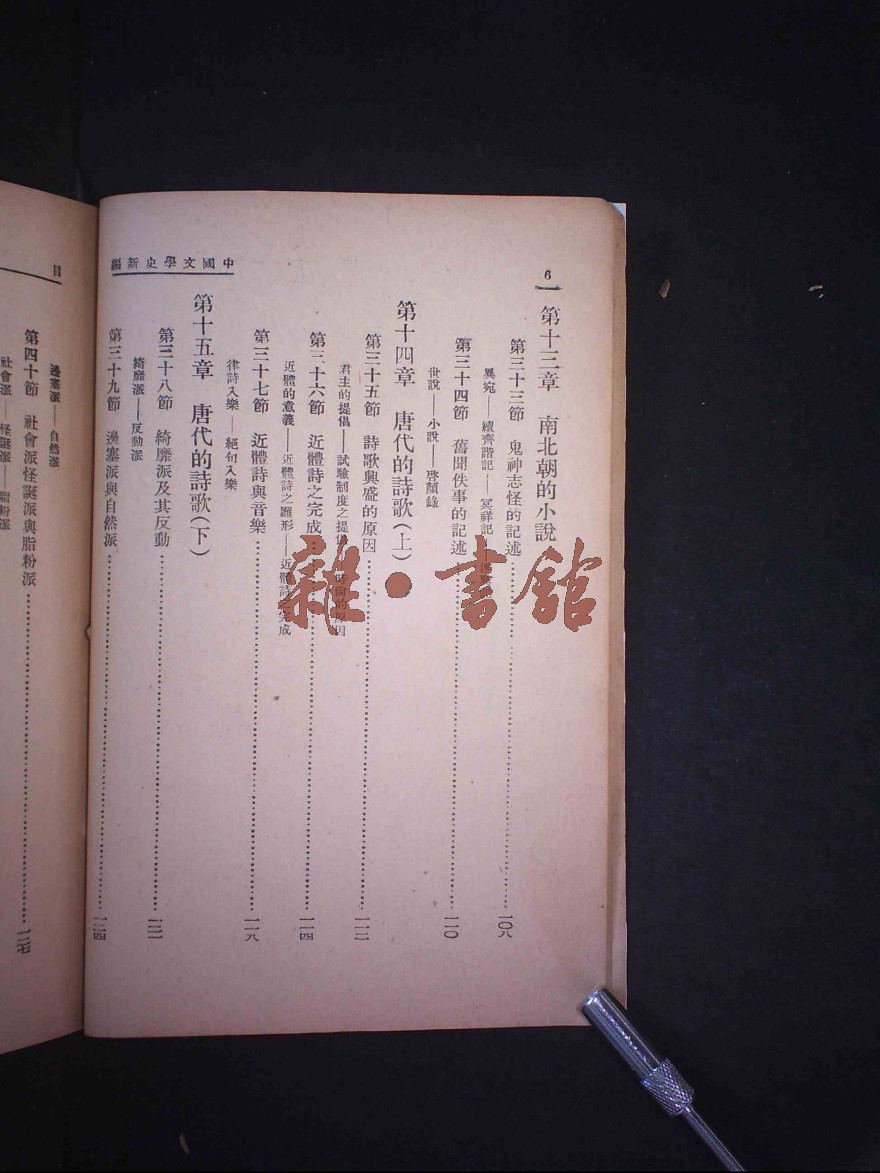 中國文學史新編
6
第十三章 南北朝的小說
第三十三節 鬼神志怪的記述……一〇八
異宛——續齊諧記——冥祥記——
第三十四節 舊聞佚事的記述……一一〇
世說——小說——啓顏錄
第十四章 唐代的詩歌(上)
第三十五節 詩歌興盛的原因……一一二
君主的提倡——試驗制度之提倡——的原因
第三十六節 近體詩之完成……一一四
近體的意義——近體詩之雛形——近體詩之完成
第三十七節 近體詩與音樂……一一八
律詩入樂——絕句入樂
第十五章 唐代的詩歌(下)
第三十八節 綺靡派及其反動……一二一
綺靡派——反動派
第三十九節 邊塞派與自然派……一二四
目
邊塞派——自然派
第四十節 社會派怪誕派與脂粉派……一二七
社會派——怪誕派——脂粉派
雜·書館